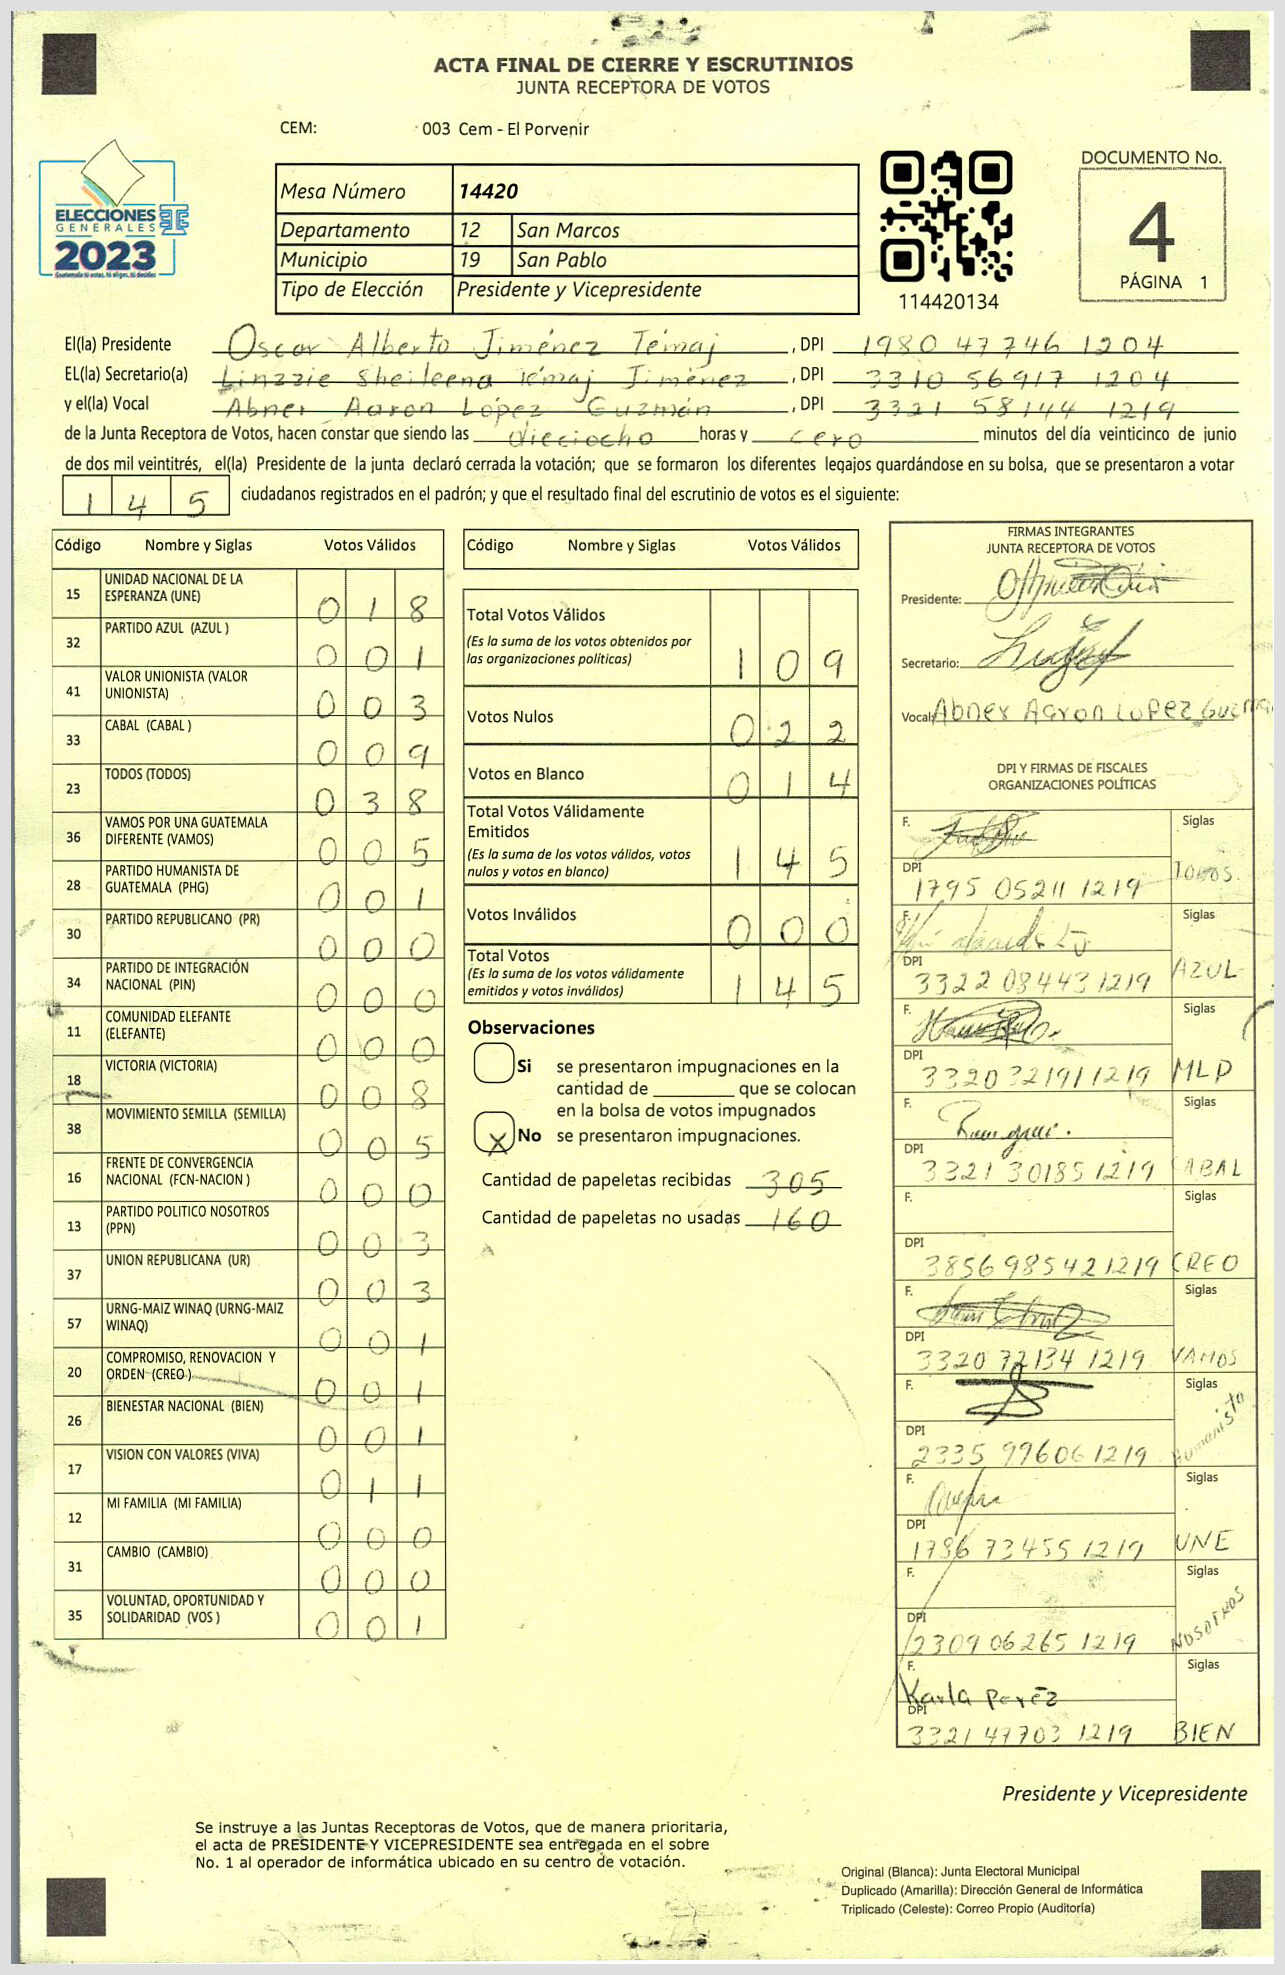 ACTA FINAL DE CIERRE Y ESCRUTINIOS
JUNTA RECEPTORA DE VOTOS
CEM: 003 Cem - El Porvenir
ELECCIONES
GENERALES
2023
Mesa Número 14420
Departamento 12 San Marcos
Municipio 19 San Pablo
Tipo de Elección Presidente y Vicepresidente
114420134
DOCUMENTO No.
4
PÁGINA 1
El(la) Presidente Oscar Alberto Jiménez Témaj , DPI 1980 47746 1204
EL(la) Secretario(a) Linzzie Sheileena Témaj Jiménez , DPI 3310 56917 1204
y el(la) Vocal Abner Aaron López Guzmán , DPI 3321 58144 1219
de la Junta Receptora de Votos, hacen constar que siendo las dieciocho horas y cero minutos del día veinticinco de junio
de dos mil veintitrés, el(la) Presidente de la junta declaró cerrada la votación; que se formaron los diferentes legajos guardándose en su bolsa, que se presentaron a votar
1 4 5 ciudadanos registrados en el padrón; y que el resultado final del escrutinio de votos es el siguiente:
Código Nombre y Siglas Votos Válidos
15 UNIDAD NACIONAL DE LA ESPERANZA (UNE) 0 1 8
32 PARTIDO AZUL (AZUL ) 0 0 1
41 VALOR UNIONISTA (VALOR UNIONISTA) 0 0 3
33 CABAL (CABAL ) 0 0 9
23 TODOS (TODOS) 0 3 8
36 VAMOS POR UNA GUATEMALA DIFERENTE (VAMOS) 0 0 5
28 PARTIDO HUMANISTA DE GUATEMALA (PHG) 0 0 1
30 PARTIDO REPUBLICANO (PR) 0 0 0
34 PARTIDO DE INTEGRACIÓN NACIONAL (PIN) 0 0 0
11 COMUNIDAD ELEFANTE (ELEFANTE) 0 0 0
18 VICTORIA (VICTORIA) 0 0 8
38 MOVIMIENTO SEMILLA (SEMILLA) 0 0 5
16 FRENTE DE CONVERGENCIA NACIONAL (FCN-NACION ) 0 0 0
13 PARTIDO POLITICO NOSOTROS (PPN) 0 0 3
37 UNION REPUBLICANA (UR) 0 0 3
57 URNG-MAIZ WINAQ (URNG-MAIZ WINAQ) 0 0 1
20 COMPROMISO, RENOVACION Y ORDEN (CREO ) 0 0 1
26 BIENESTAR NACIONAL (BIEN) 0 0 1
17 VISION CON VALORES (VIVA) 0 1 1
12 MI FAMILIA (MI FAMILIA) 0 0 0
31 CAMBIO (CAMBIO) 0 0 0
35 VOLUNTAD, OPORTUNIDAD Y SOLIDARIDAD (VOS ) 0 0 1
Código Nombre y Siglas Votos Válidos
Total Votos Válidos
(Es la suma de los votos obtenidos por
las organizaciones políticas) 1 0 9
Votos Nulos 0 2 2
Votos en Blanco 0 1 4
Total Votos Válidamente
Emitidos
(Es la suma de los votos válidos, votos
nulos y votos en blanco) 1 4 5
Votos Inválidos 0 0 0
Total Votos
(Es la suma de los votos válidamente
emitidos y votos inválidos) 1 4 5
Observaciones
Si se presentaron impugnaciones en la
cantidad de ________ que se colocan
en la bolsa de votos impugnados
X No se presentaron impugnaciones.
Cantidad de papeletas recibidas 305
Cantidad de papeletas no usadas 160
FIRMAS INTEGRANTES
JUNTA RECEPTORA DE VOTOS
Presidente:
Secretario:
Vocal: Abner Aaron Lopez
DPI Y FIRMAS DE FISCALES
ORGANIZACIONES POLÍTICAS
F. Siglas
DPI 1795 05211 1219 TODOS
F. Siglas
DPI 3322 08443 1219 AZUL
F. Siglas
DPI 3320 32191 1219 MLP
F. Siglas
DPI 3321 30185 1219 CABAL
F. Siglas
DPI 3856 98542 1219 CREO
F. Siglas
DPI 3320 72134 1219 VAMOS
F. Siglas
DPI 2335 99606 1219 Humanista
F. Siglas
DPI 1786 73455 1219 UNE
F. Siglas
DPI 2309 06265 1219 NOSOTROS
F. Karla Peréz Siglas
DPI 3321 47703 1219 BIEN
Presidente y Vicepresidente
Se instruye a las Juntas Receptoras de Votos, que de manera prioritaria,
el acta de PRESIDENTE Y VICEPRESIDENTE sea entregada en el sobre
No. 1 al operador de informática ubicado en su centro de votación.
Original (Blanca): Junta Electoral Municipal
Duplicado (Amarilla): Dirección General de Informática
Triplicado (Celeste): Correo Propio (Auditoría)